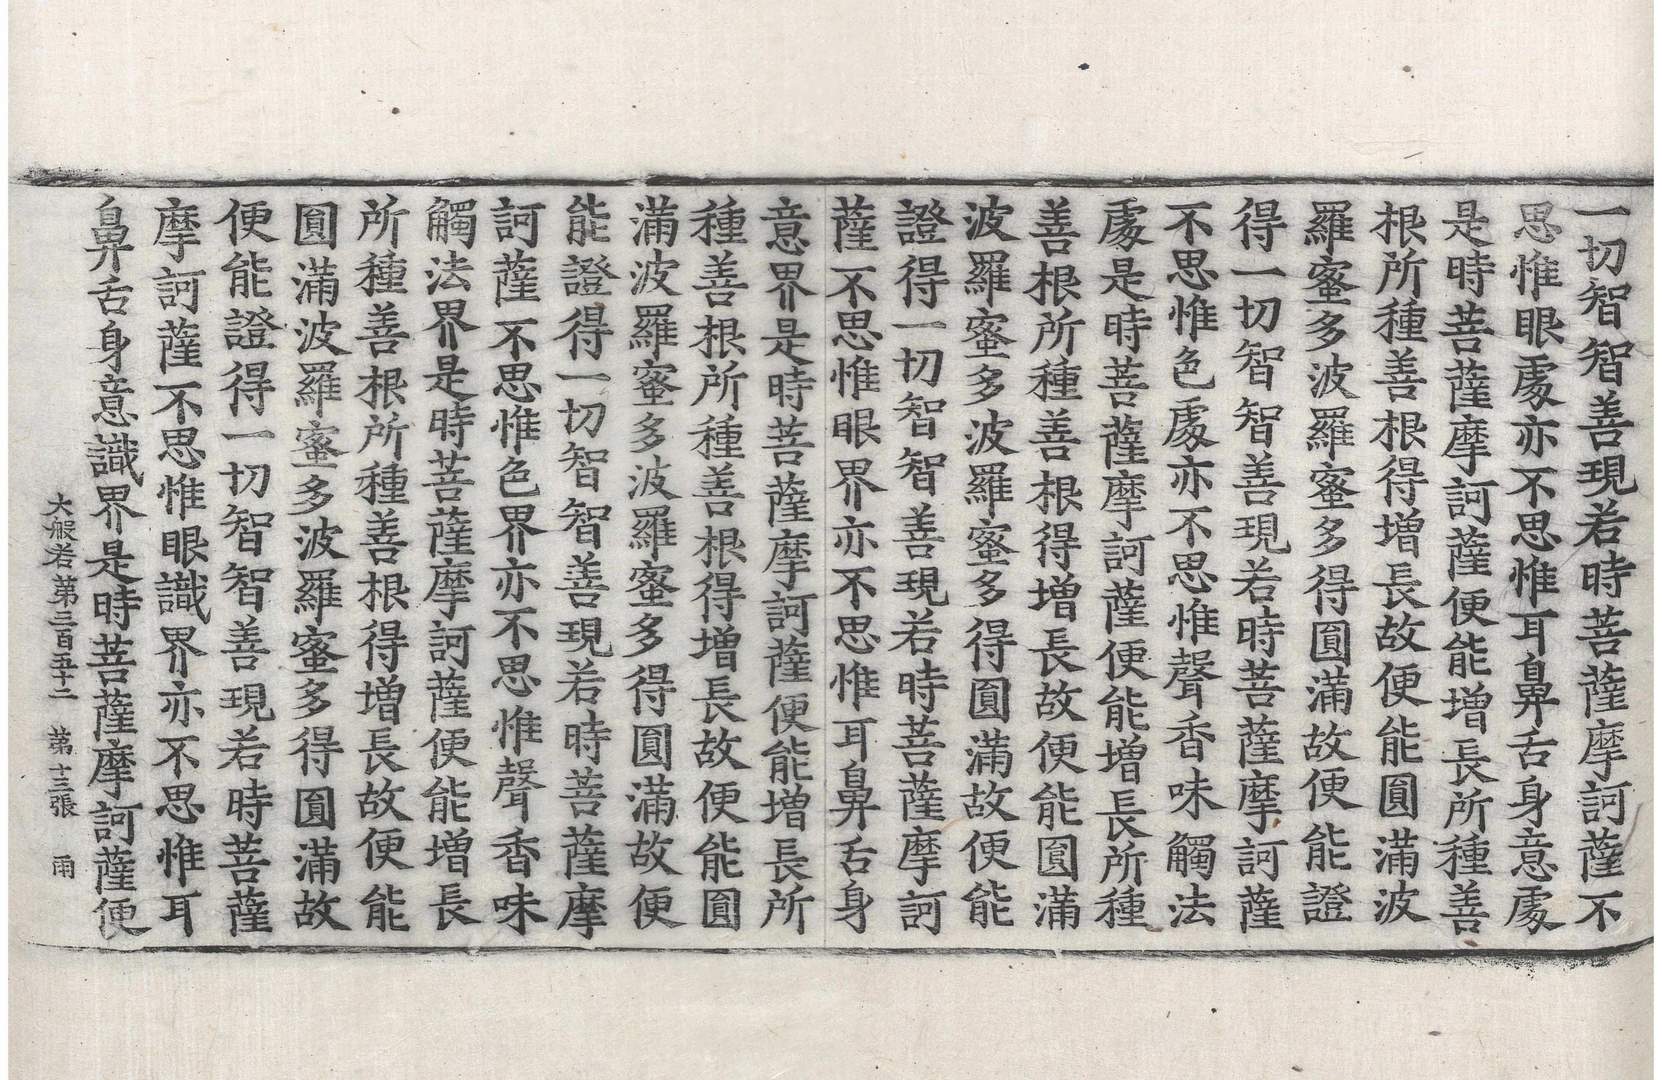 一切智智善現若時菩薩摩訶薩不
思惟眼處亦不思惟耳鼻舌身意處
是時菩薩摩訶薩便能增長所種善
根所種善根得增長故便能圓滿波
羅蜜多波羅蜜多得圓滿故便能證
得一切智智善現若時菩薩摩訶薩
不思惟色處亦不思惟聲香味觸法
處是時菩薩摩訶薩便能增長所種
善根所種善根得增長故便能圓滿
波羅蜜多波羅蜜多得圓滿故便能
證得一切智智善現若時菩薩摩訶
薩不思惟眼界亦不思惟耳鼻舌身
意界是時菩薩摩訶薩便能增長所
種善根所種善根得增長故便能圓
滿波羅蜜多波羅蜜多得圓滿故便
能證得一切智智善現若時菩薩摩
訶薩不思惟色界亦不思惟聲香味
觸法界是時菩薩摩訶薩便能增長
所種善根所種善根得增長故便能
圓滿波羅蜜多波羅蜜多得圓滿故
便能證得一切智智善現若時菩薩
摩訶薩不思惟眼識界亦不思惟耳
鼻舌身意識界是時菩薩摩訶薩便
大般若第三百五十二 第十三張 雨